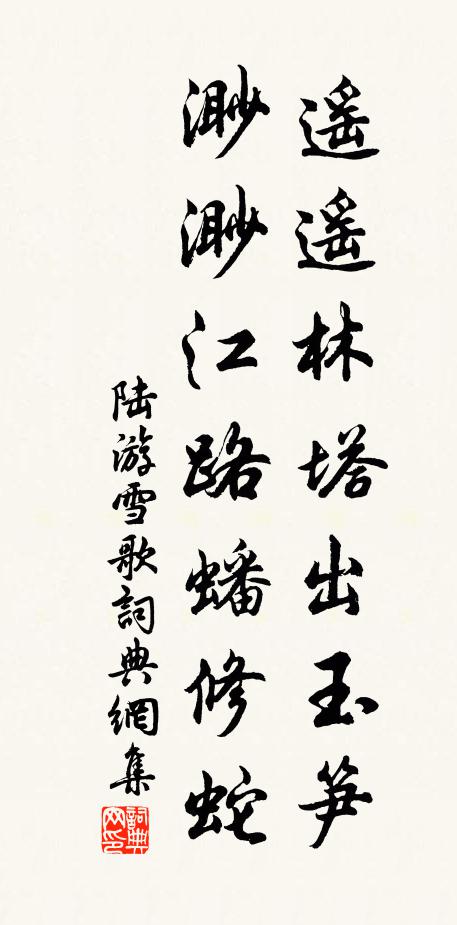 遥遥林塔出玉笋
渺渺江路蟠修蛇
陆游雪歌詞典網集
詞典网印